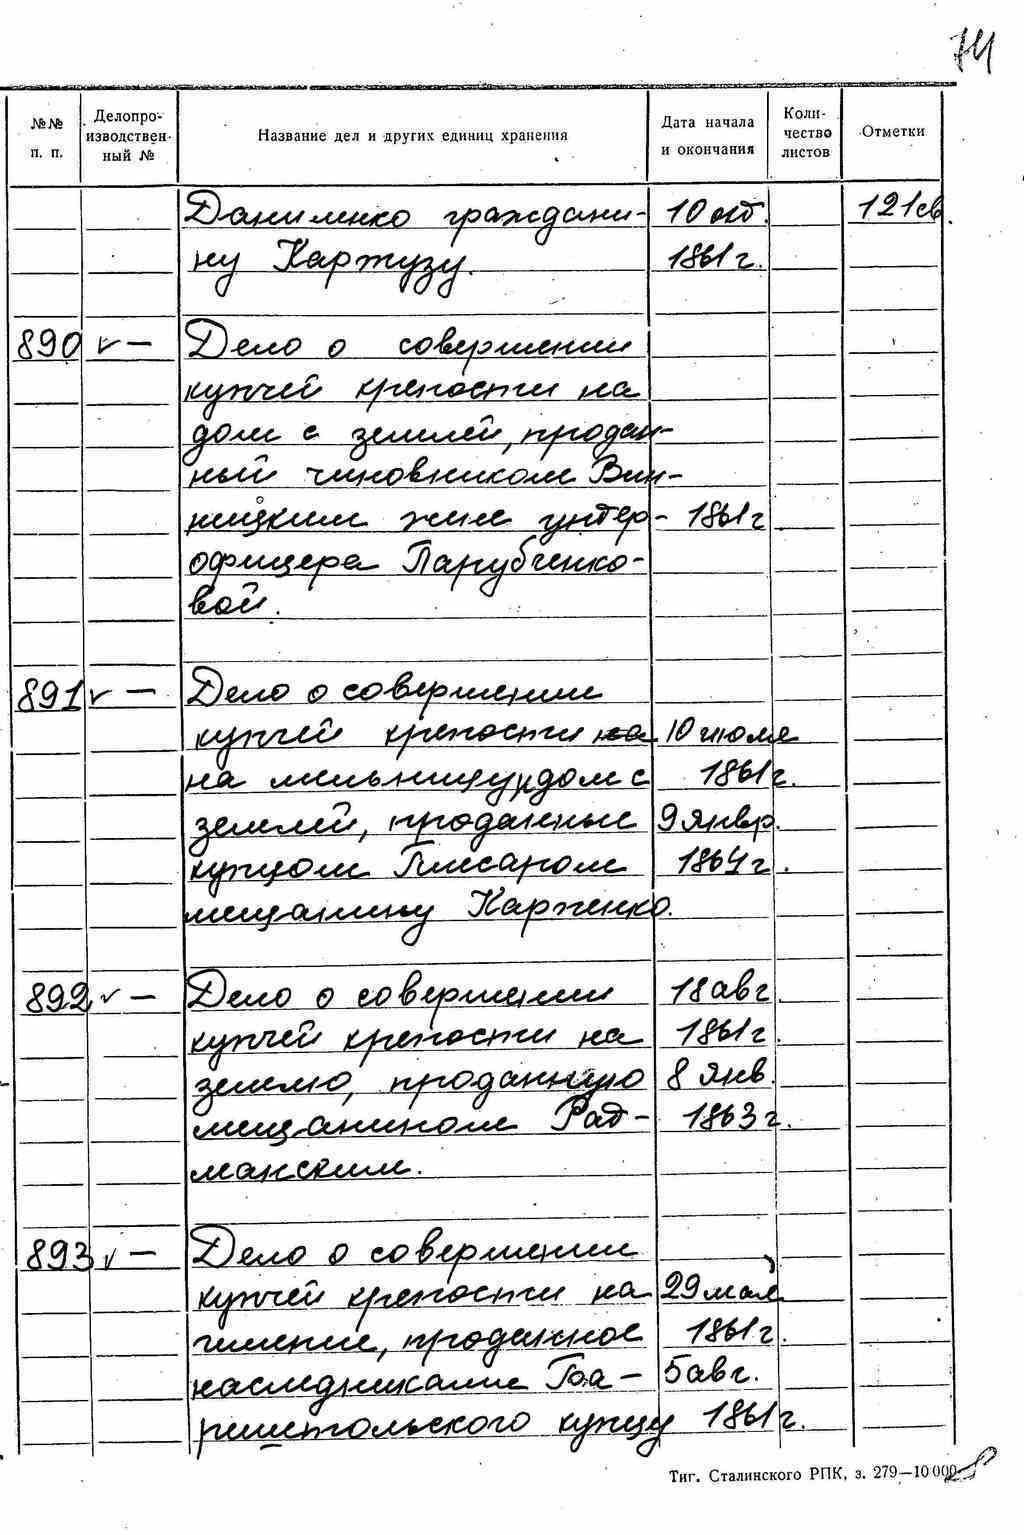 74
№№ п. п. Делопроизводствен- ный № Название дел и других единиц хранения Дата начала и окончания Коли- чество листов Отметки
Даниленко граждани- 10 окт. 121св.
ну Каржузу. 1861 г.
890 ✓ — Дело о совершении
купчей крепости на
дом с землей, продан-
ный чиновником Вин-
ницким жене унтер- 1861 г
офицера Парубченко-
вой.
891 ✓ — Дело о совершении
купчей крепости на 10 июля
на мельницу и дом с 1861 г.
землей, проданные 9 январ.
купцом Писаром 1864 г.
мещанину Карпенко.
892 ✓ — Дело о совершении 18 авг
купчей крепости на 1861 г.
землю, проданную 8 янв.
мещанином Рад- 1863 г.
манским.
893 ✓ — Дело о совершении
купчей крепости на 29 мая
имение, проданное 1861 г.
наследниками Гоа- 5 авг.
купцу 1861 г.
Тиг. Сталинского РПК, з. 279—10 000